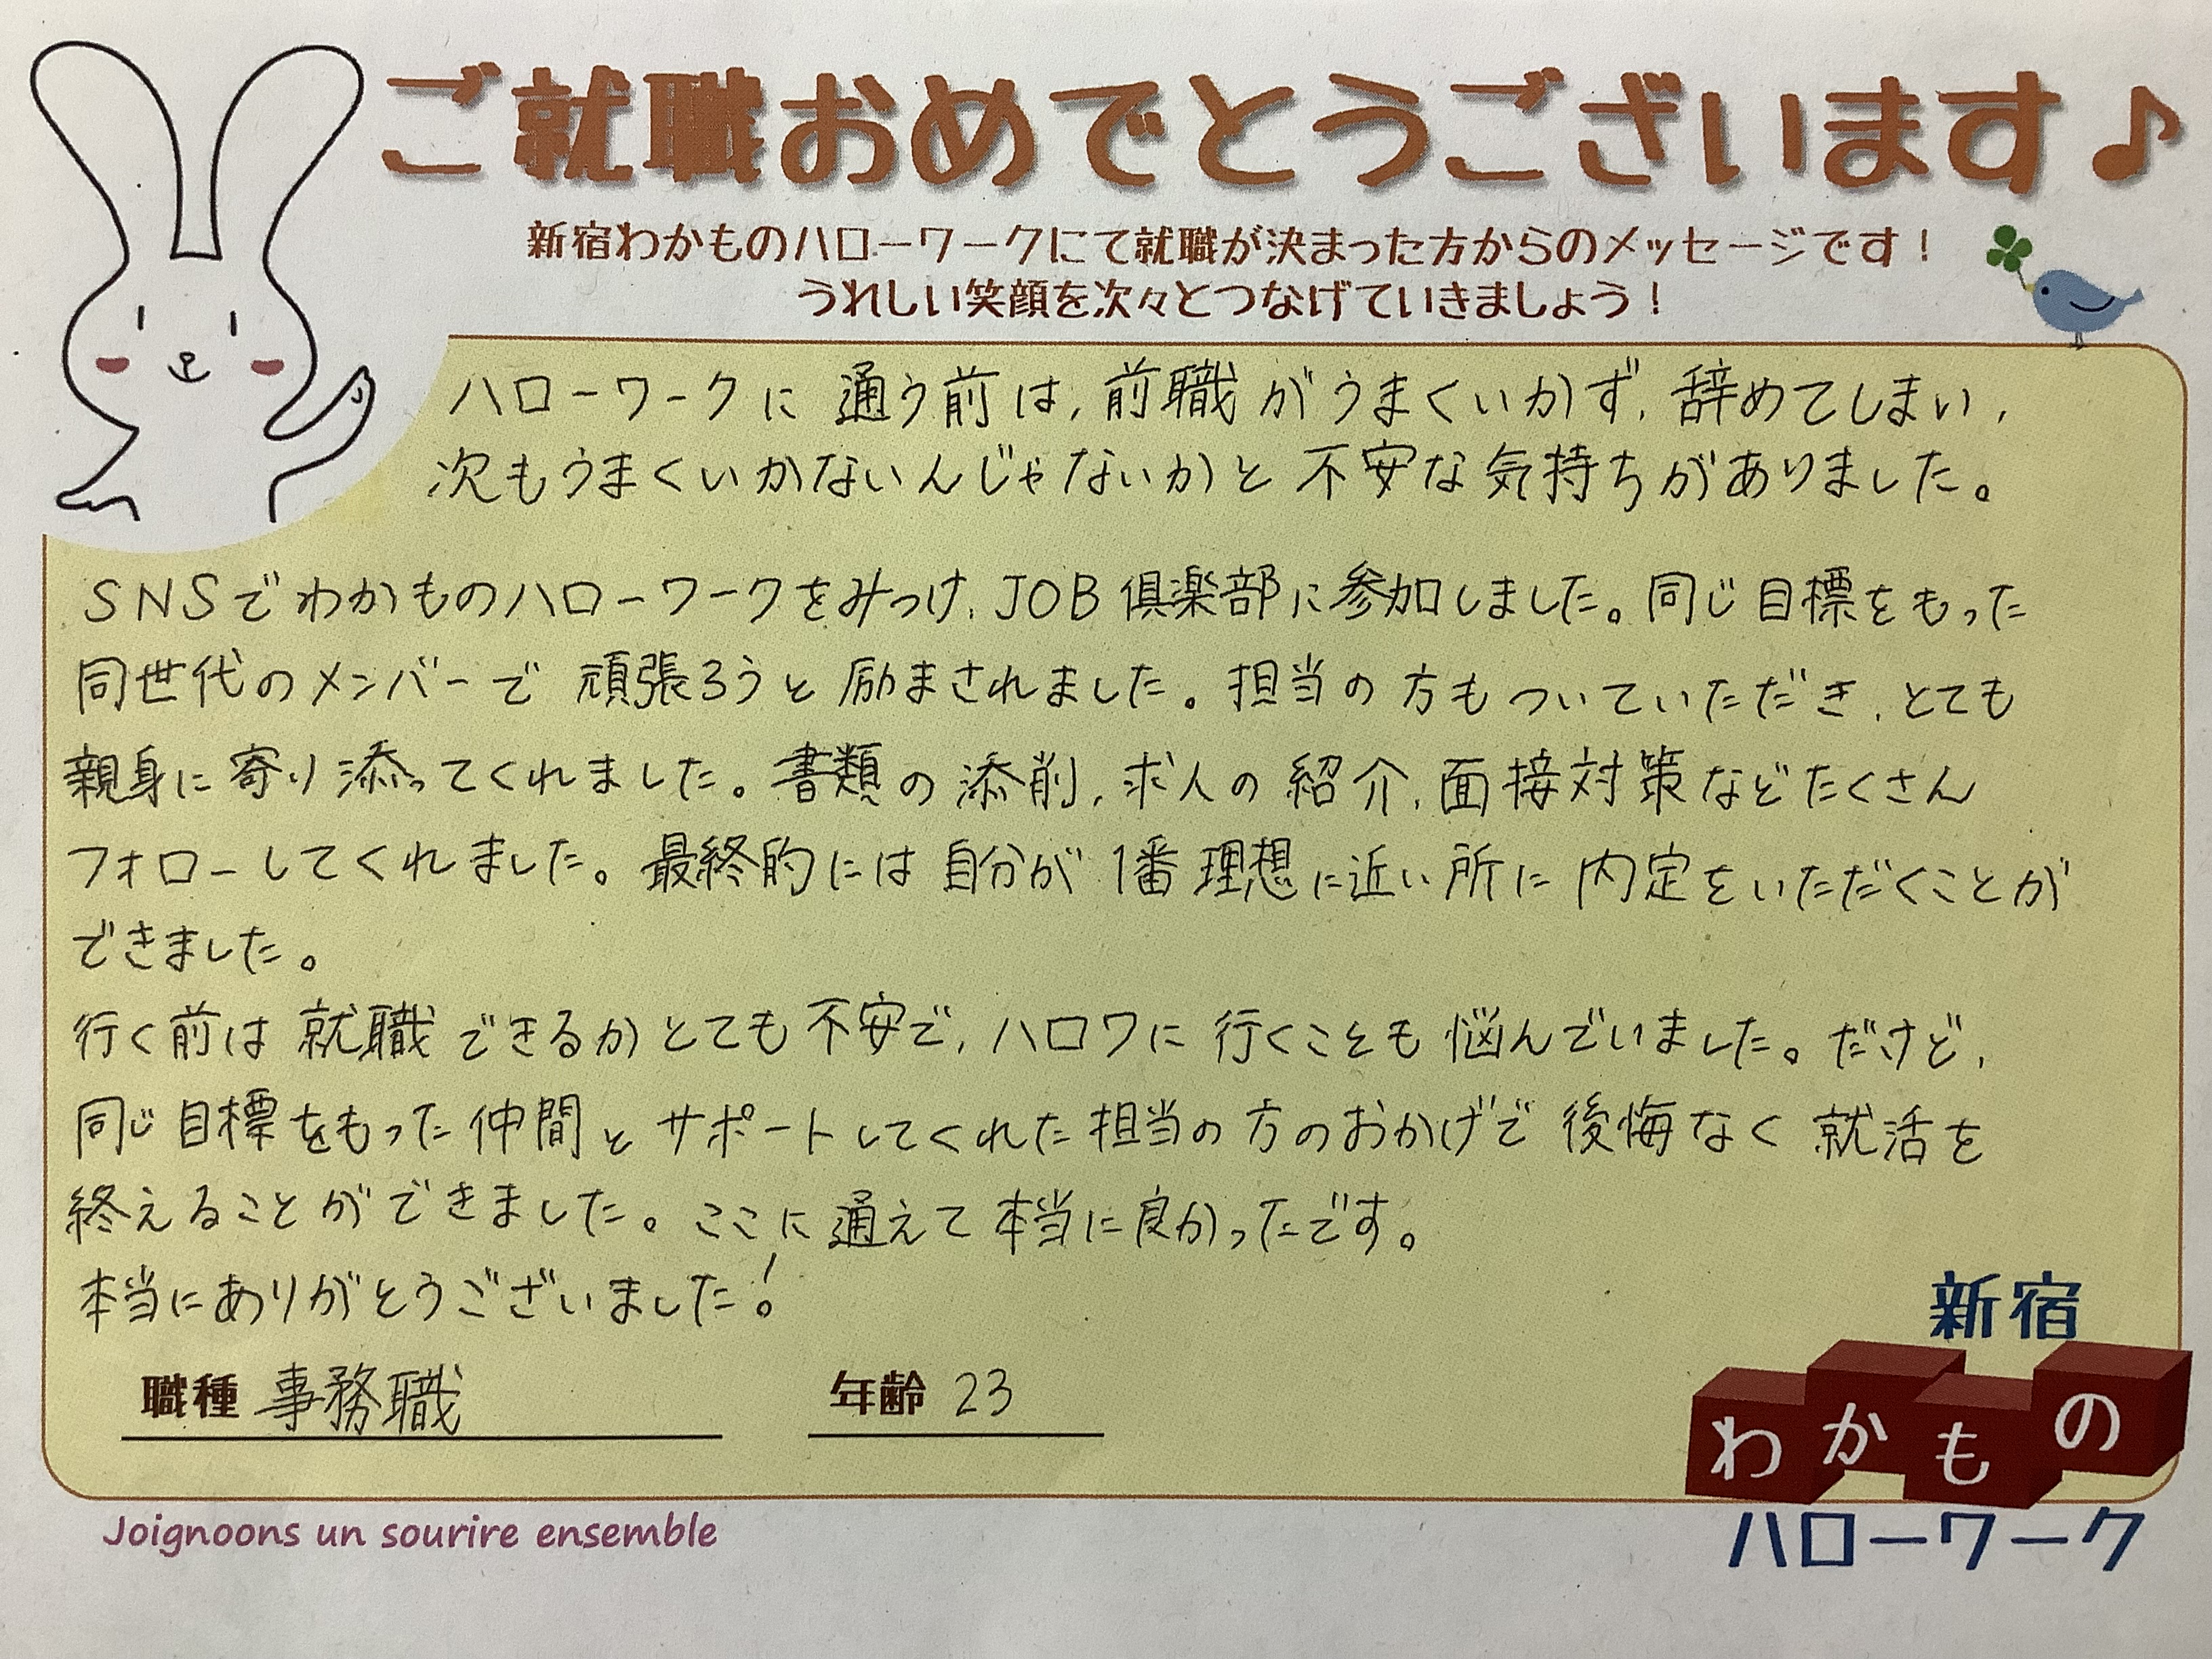 ご就職おめでとうございます♪
新宿わかものハローワークにて就職が決まった方からのメッセージです！
うれしい笑顔を次々とつなげていきましょう！
ハローワークに通う前は、前職がうまくいかず、辞めてしまい、
次もうまくいかないんじゃないかと不安な気持ちがありました。
SNSでわかものハローワークをみつけ、JOB倶楽部に参加しました。同じ目標をもった
同世代のメンバーで頑張ろうと励まされました。担当の方もついていただき、とても
親身に寄り添ってくれました。書類の添削、求人の紹介、面接対策などたくさん
フォローしてくれました。最終的には自分が1番理想に近い所に内定をいただくことが
できました。
行く前は就職できるかとても不安で、ハロワに行くことも悩んでいました。だけど、
同じ目標をもった仲間とサポートしてくれた担当の方のおかげで後悔なく就活を
終えることができました。ここに通えて本当に良かったです。
本当にありがとうございました！
職種 事務職
年齢 23
新宿
わかもの
ハローワーク
Joignoons un sourire ensemble